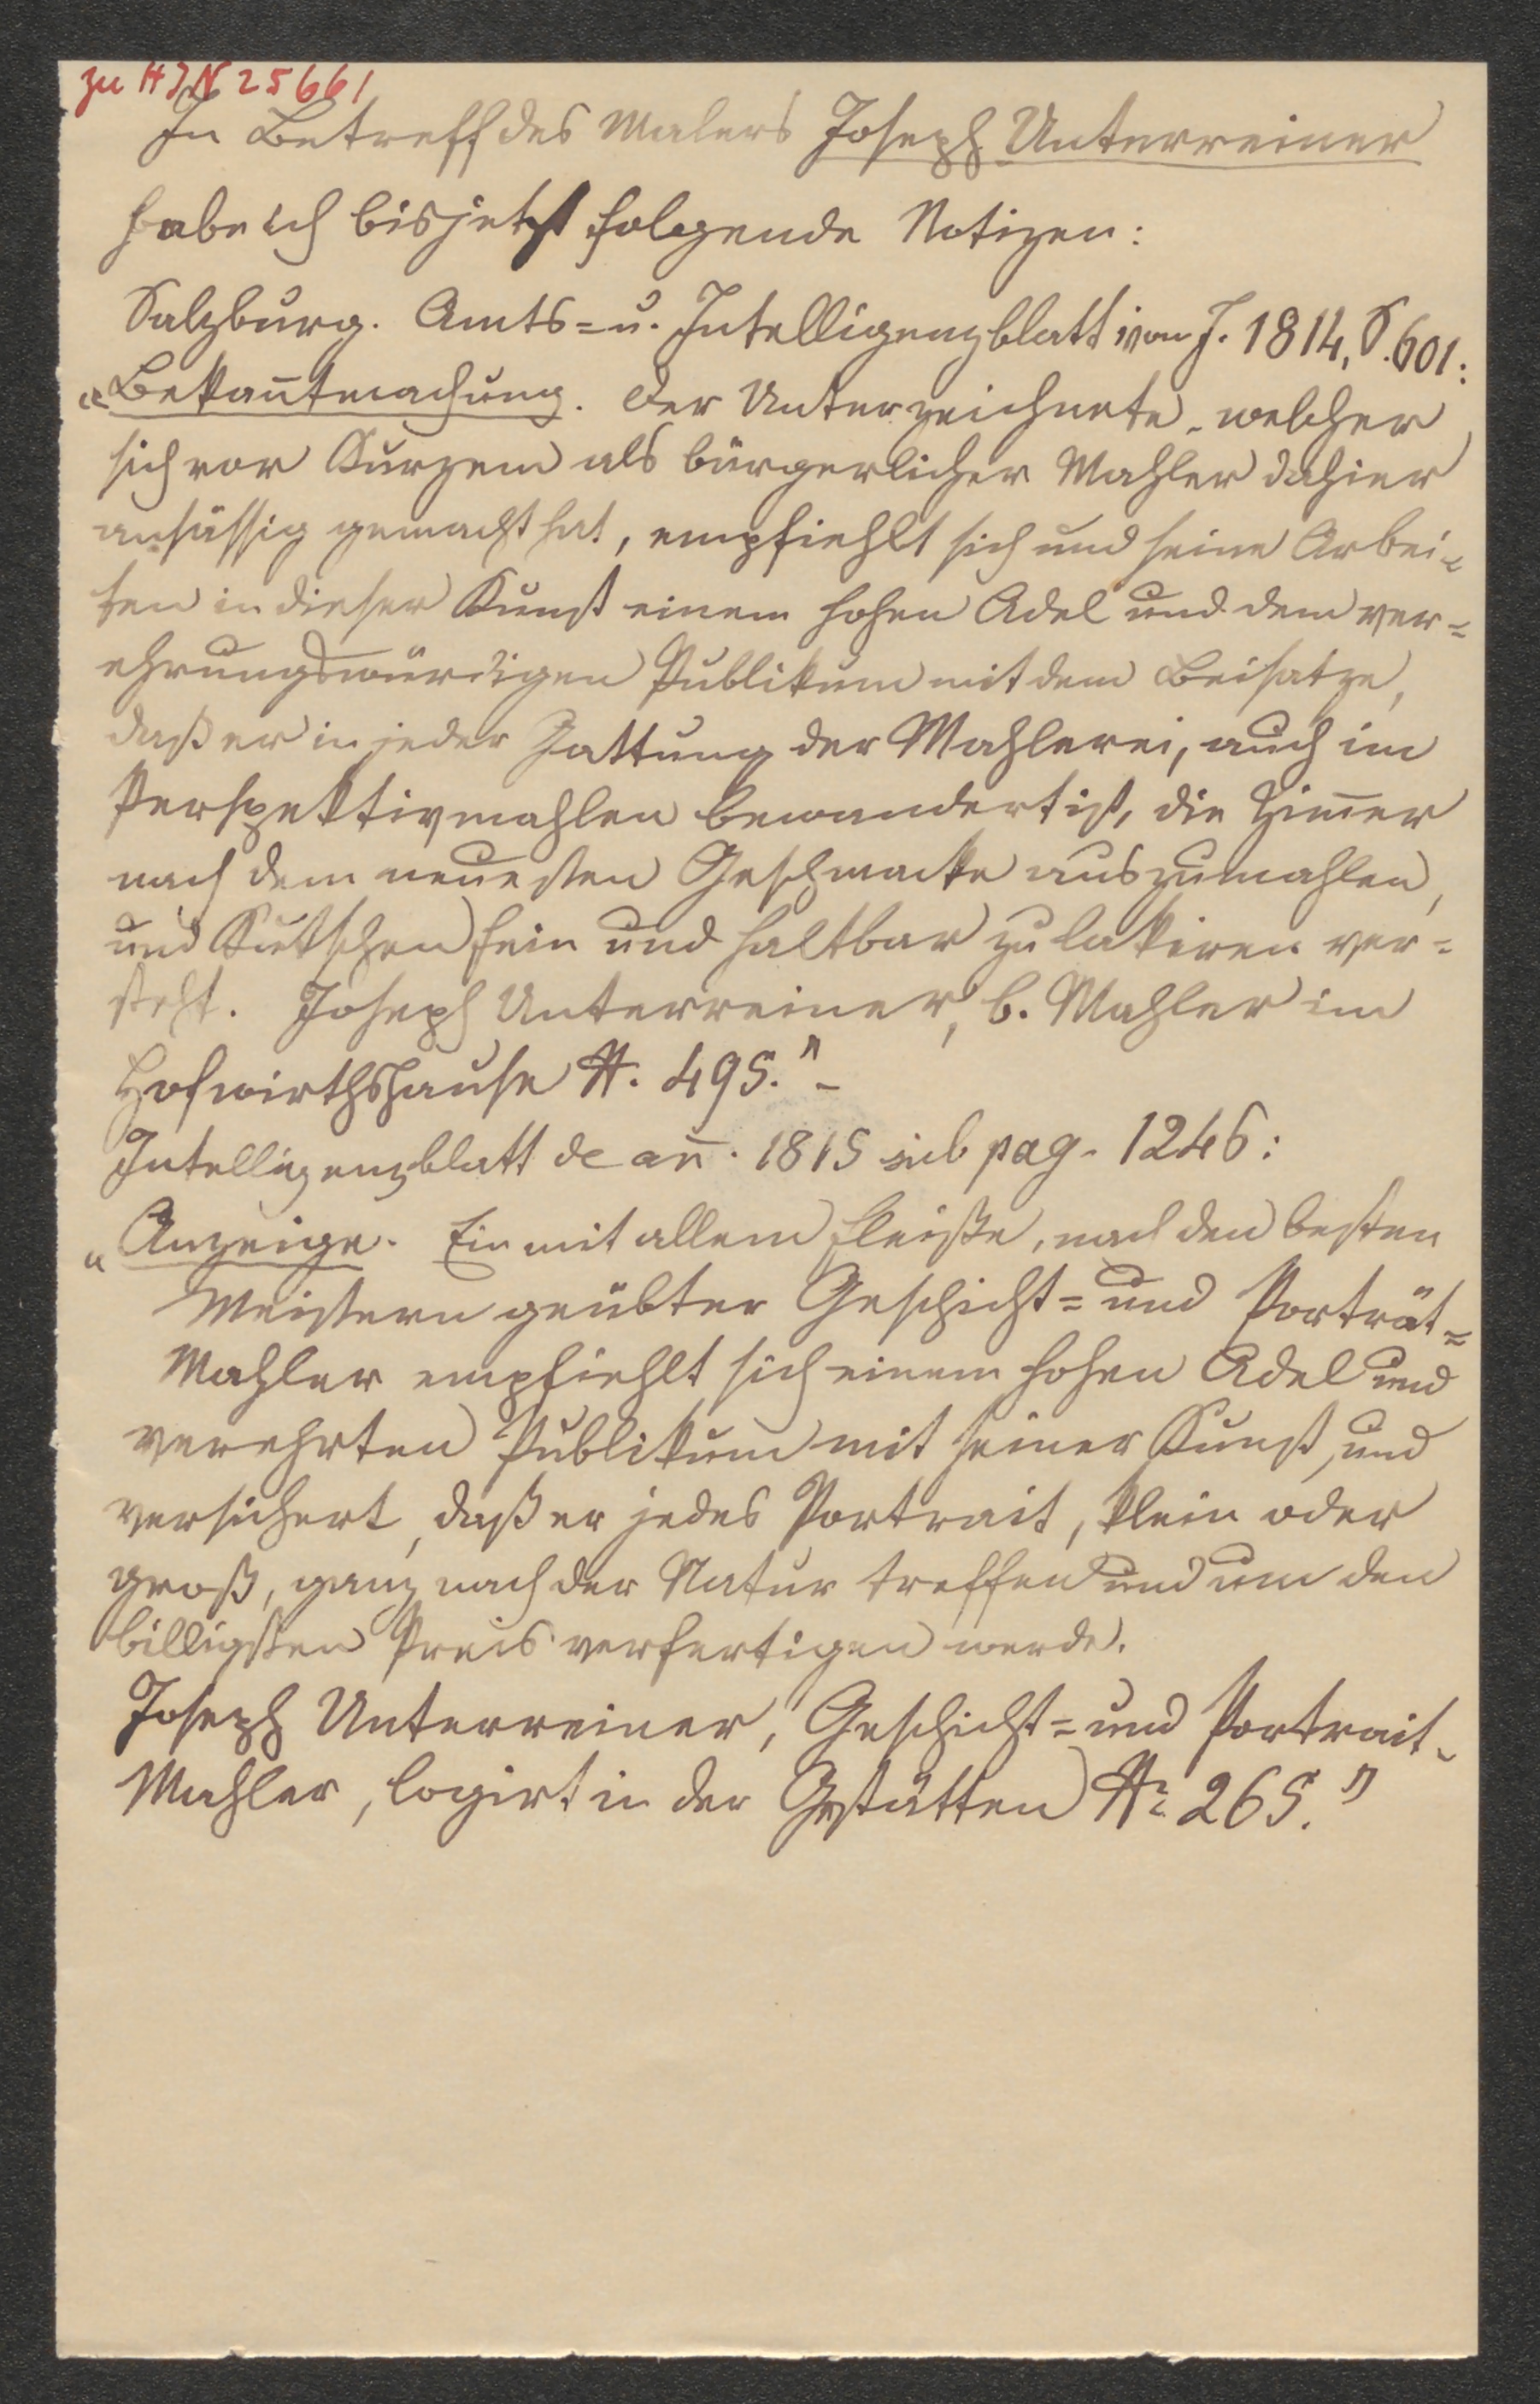 zu HJN 25661
In Betreff des Malers Joseph Unterreiner
habe ich bisjetzt folgende Notizen:
Salzburg. Amts- u. Intelligenzblatt von J. 1814, S. 601:
"Bekan̄tmachung. Der Unterzeichnete, welcher
sich vor Kurzem als bürgerlicher Mahler dahier
ansässig gemacht hat, empfiehlt sich und seine Arbei-
ten in dieser Kunst einem hohen Adel und dem ver=
ehrungswürdigen Publikum mit dem Beisatze,
daß er in jeder Gattung der Mahlerei, auch im
Perspektivmahlen bewandert ist, die Zim̄er
nach dem neuesten Geschmacke auszumahlen,
und Kutschen fein und haltbar zu lakiren ver=
steht. Joseph Unterreiner, b. Mahler im
Hofwirthshause N. 495." –
Intelligenzblatt de an̄. 1815 sub pag. 1246:
"Anzeige. Ein mit allem Fleiße, nach den besten
Meistern geübter Geschicht= und Porträt=
Mahler empfiehlt sich einem hohen Adel und
verehrten Publikum mit seiner Kunst, und
versichert, daß er jedes Portrait, klein oder
groß, ganz nach der Natur treffen und um den
billigsten Preis verfertigen werde.
Joseph Unterreiner, Geschicht= und Portrait-
Mahler, logirt in der Gstätten Nr. 265."